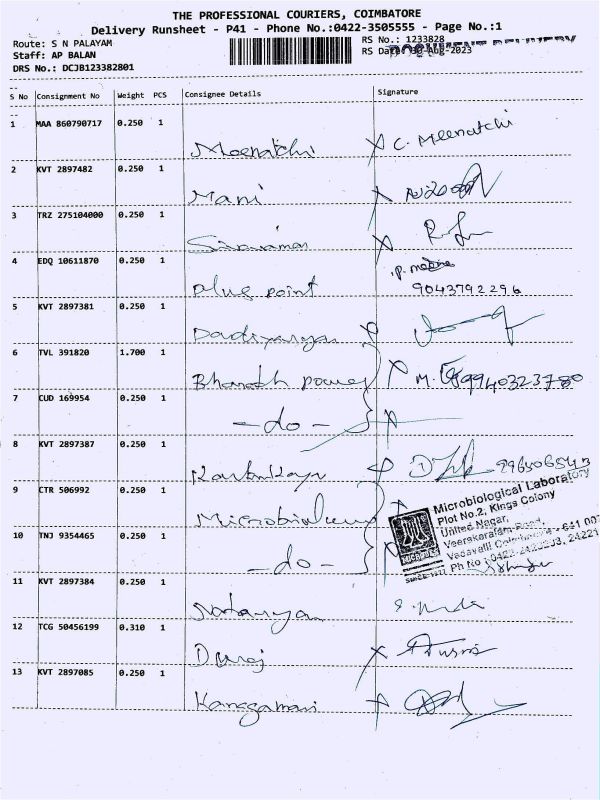 THE PROFESSIONAL COURIERS, COIMBATORE
Delivery Runsheet - P41 - Phone No.:0422-3505555 - Page No.:1
Route: S N PALAYAM
RS No.: 1233828
Staff: AP BALAN
RS Date: 30-Aug-2023
DRS No.: DCJB123382801
S No Consignment No Weight PCS Consignee Details Signature
1 MAA 860790717 0.250 1
Meenatchi C. Meenatchi
2 KVT 2897482 0.250 1
Mani
3 TRZ 275104000 0.250 1
Sivaraman
4 EDQ 10611870 0.250 1
Plus point 9043792296
5 KVT 2897381 0.250 1
6 TVL 391820 1.700 1
Bharath power M. 9940323780
7 CUD 169954 0.250 1
-do-
8 KVT 2897387 0.250 1
9 CTR 506992 0.250 1
Microbiological Laboratory
Plot No.2, Kings Colony
United Nagar,
Veerakeralam Road,
Vadavalli Coimbatore - 641 007
Ph No : 0422-
10 TNJ 9354465 0.250 1
-do-
11 KVT 2897384 0.250 1
12 TCG 50456199 0.310 1
Duraj
13 KVT 2897085 0.250 1
Kanagamani